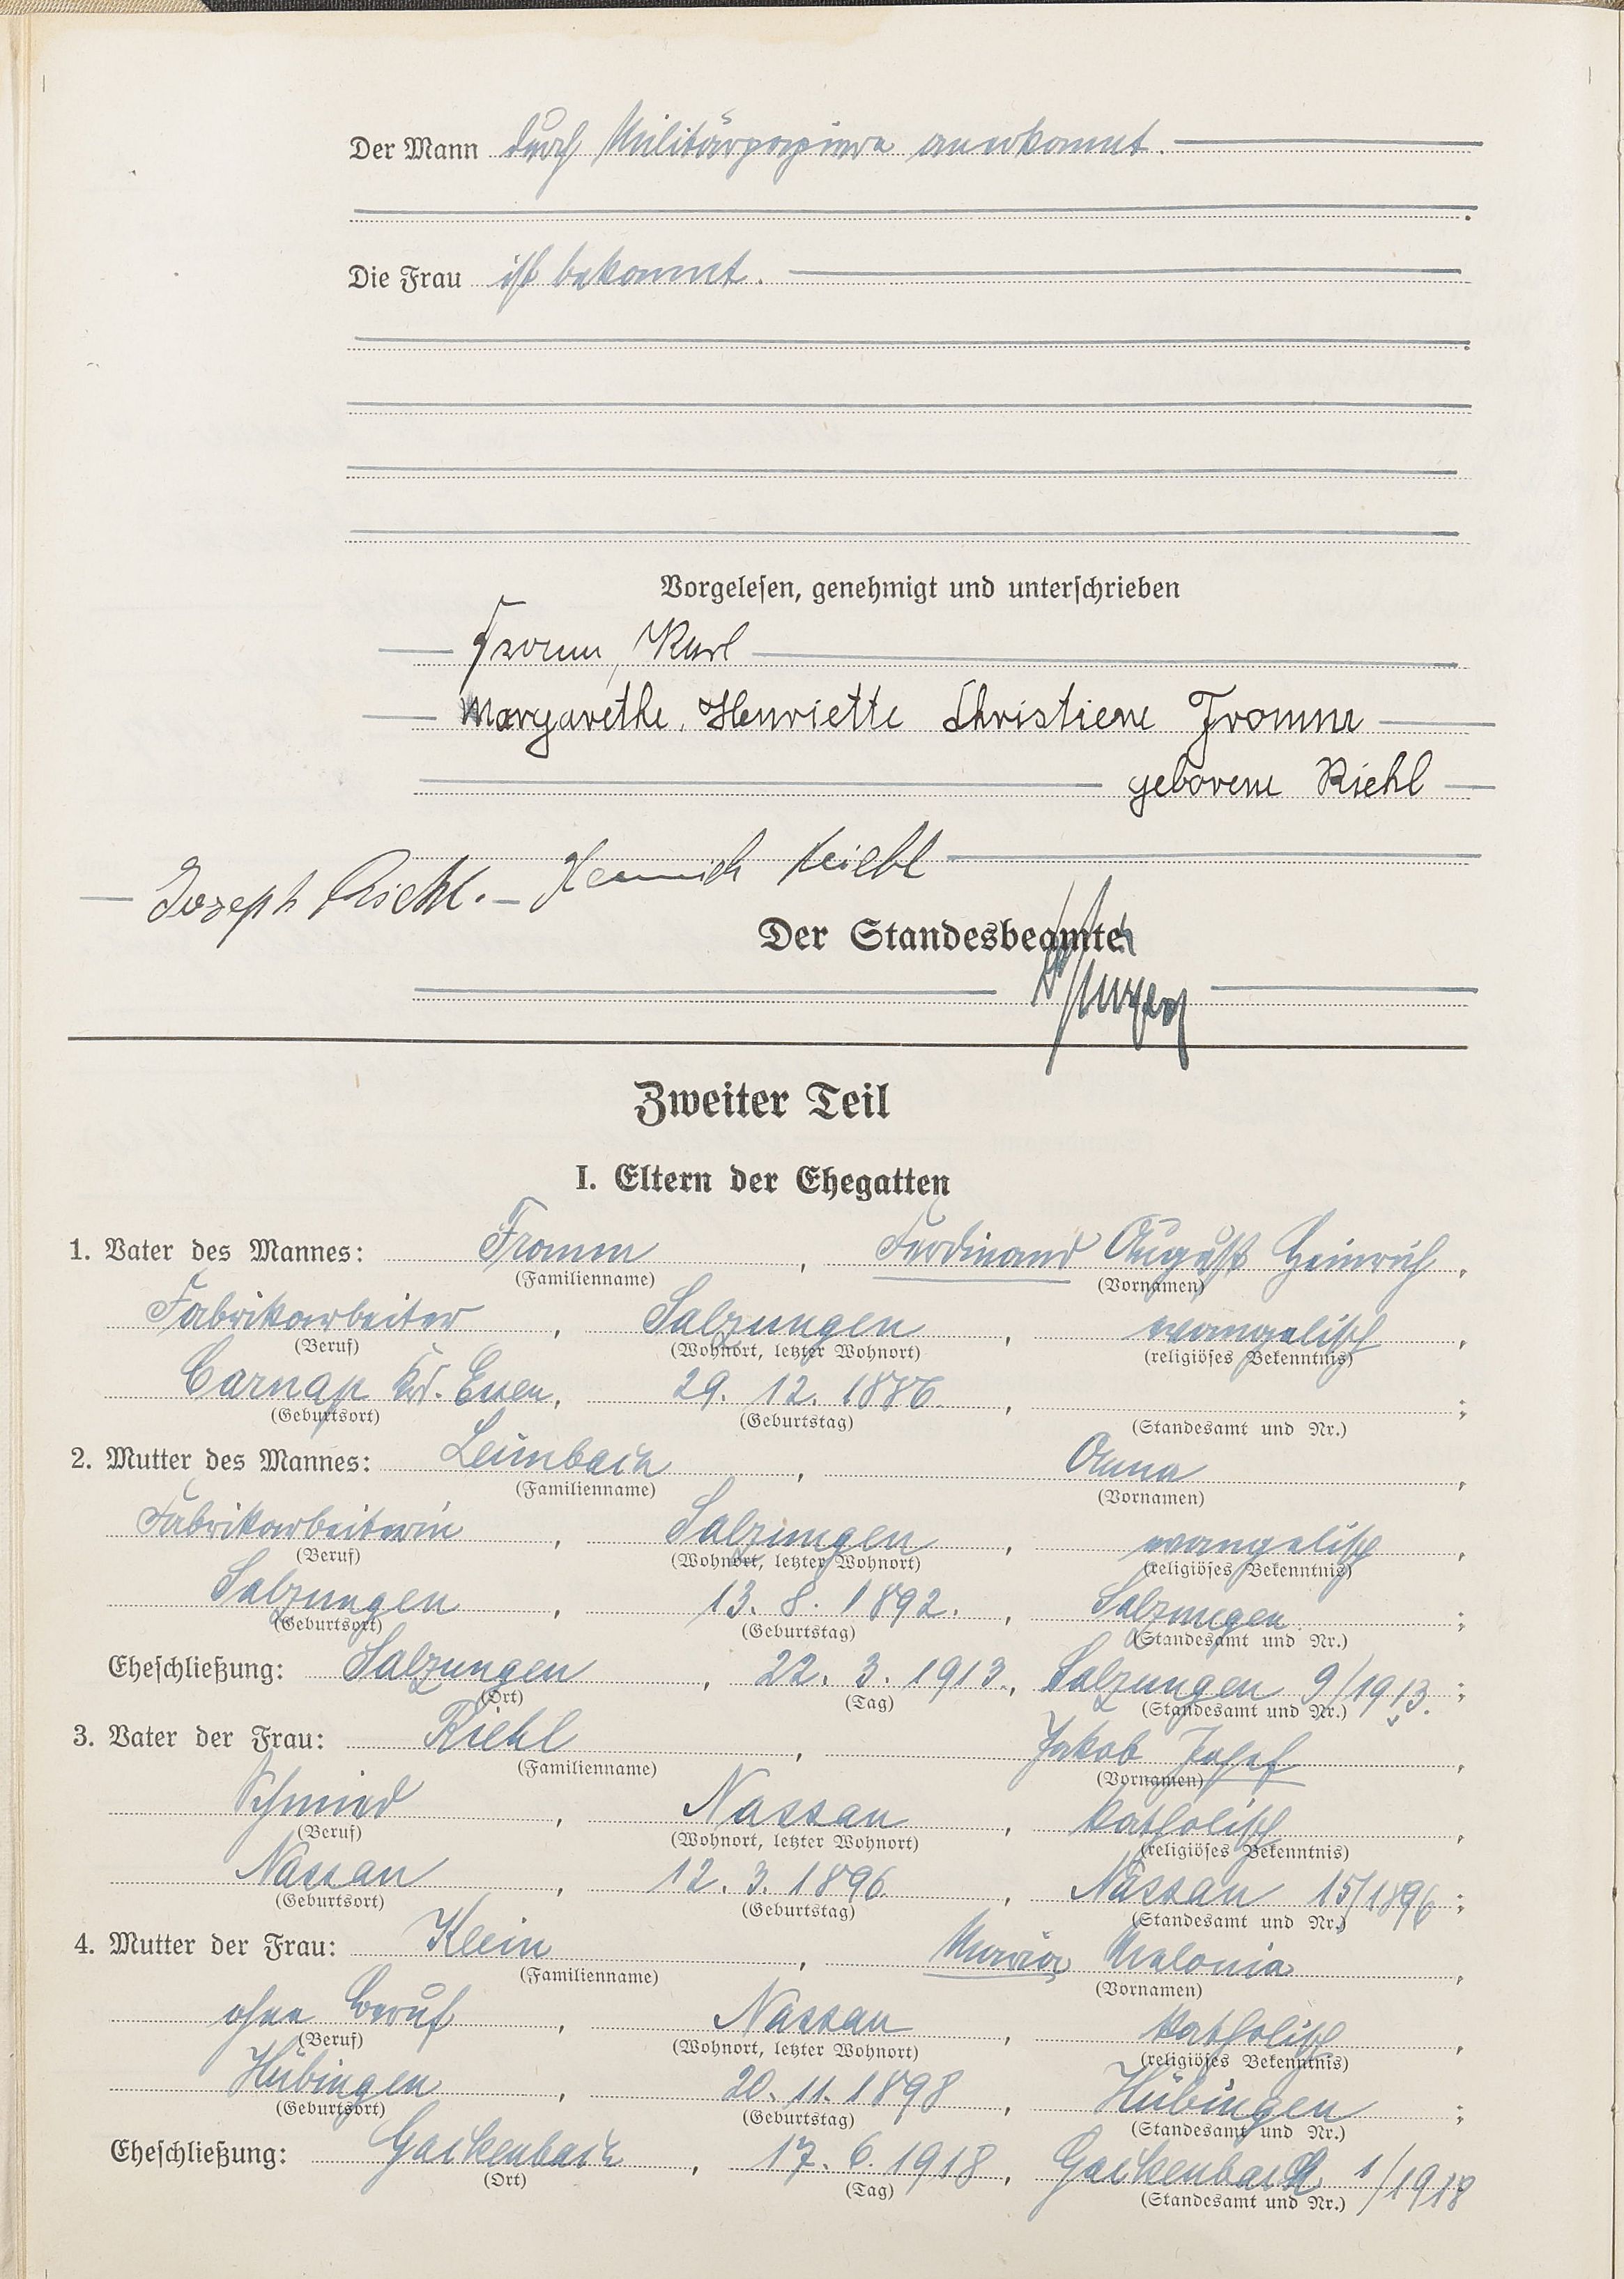 Der Mann durch Militärpapiere anerkannt.
Die Frau ist bekannt.
Vorgelesen, genehmigt und unterschrieben
Fromm, Karl
Margarethe Henriette Christiene Fromm
geborene Riehl
Joseph Riehl. – Heinrich Riehl
Der Standesbeamte
Zweiter Teil
I. Eltern der Ehegatten
1. Vater des Mannes: Fromm, Ferdinand August Heinrich,
(Familienname) (Vornamen)
Fabrikarbeiter, Salzungen, evangelisch,
(Beruf) (Wohnort, letzter Wohnort) (religiöses Bekenntnis)
Carnap Krs. Essen, 29. 12. 1886,;
(Geburtsort) (Geburtstag) (Standesamt und Nr.)
2. Mutter des Mannes: Leimbach, Anna,
(Familienname) (Vornamen)
Fabrikarbeiterin, Salzungen, evangelisch,
(Beruf) (Wohnort, letzter Wohnort) (religiöses Bekenntnis)
Salzungen, 13. 8. 1892., Salzungen;
(Geburtsort) (Geburtstag) (Standesamt und Nr.)
Eheschließung: Salzungen, 22. 3. 1913., Salzungen 9/1913.;
(Ort) (Tag) (Standesamt und Nr.)
3. Vater der Frau: Riehl, Jakob Josef,
(Familienname) (Vornamen)
Schmied, Nassau, katholisch,
(Beruf) (Wohnort, letzter Wohnort) (religiöses Bekenntnis)
Nassau, 12. 3. 1896, Nassau 15/1896;
(Geburtsort) (Geburtstag) (Standesamt und Nr.)
4. Mutter der Frau: Klein, Maria Melonia,
(Familienname) (Vornamen)
ohne Beruf, Nassau, katholisch,
(Beruf) (Wohnort, letzter Wohnort) (religiöses Bekenntnis)
Hübingen, 20. 11. 1898, Hübingen;
(Geburtsort) (Geburtstag) (Standesamt und Nr.)
Eheschließung: Gackenbach, 17. 6. 1918, Gackenbach 1/1918
(Ort) (Tag) (Standesamt und Nr.)